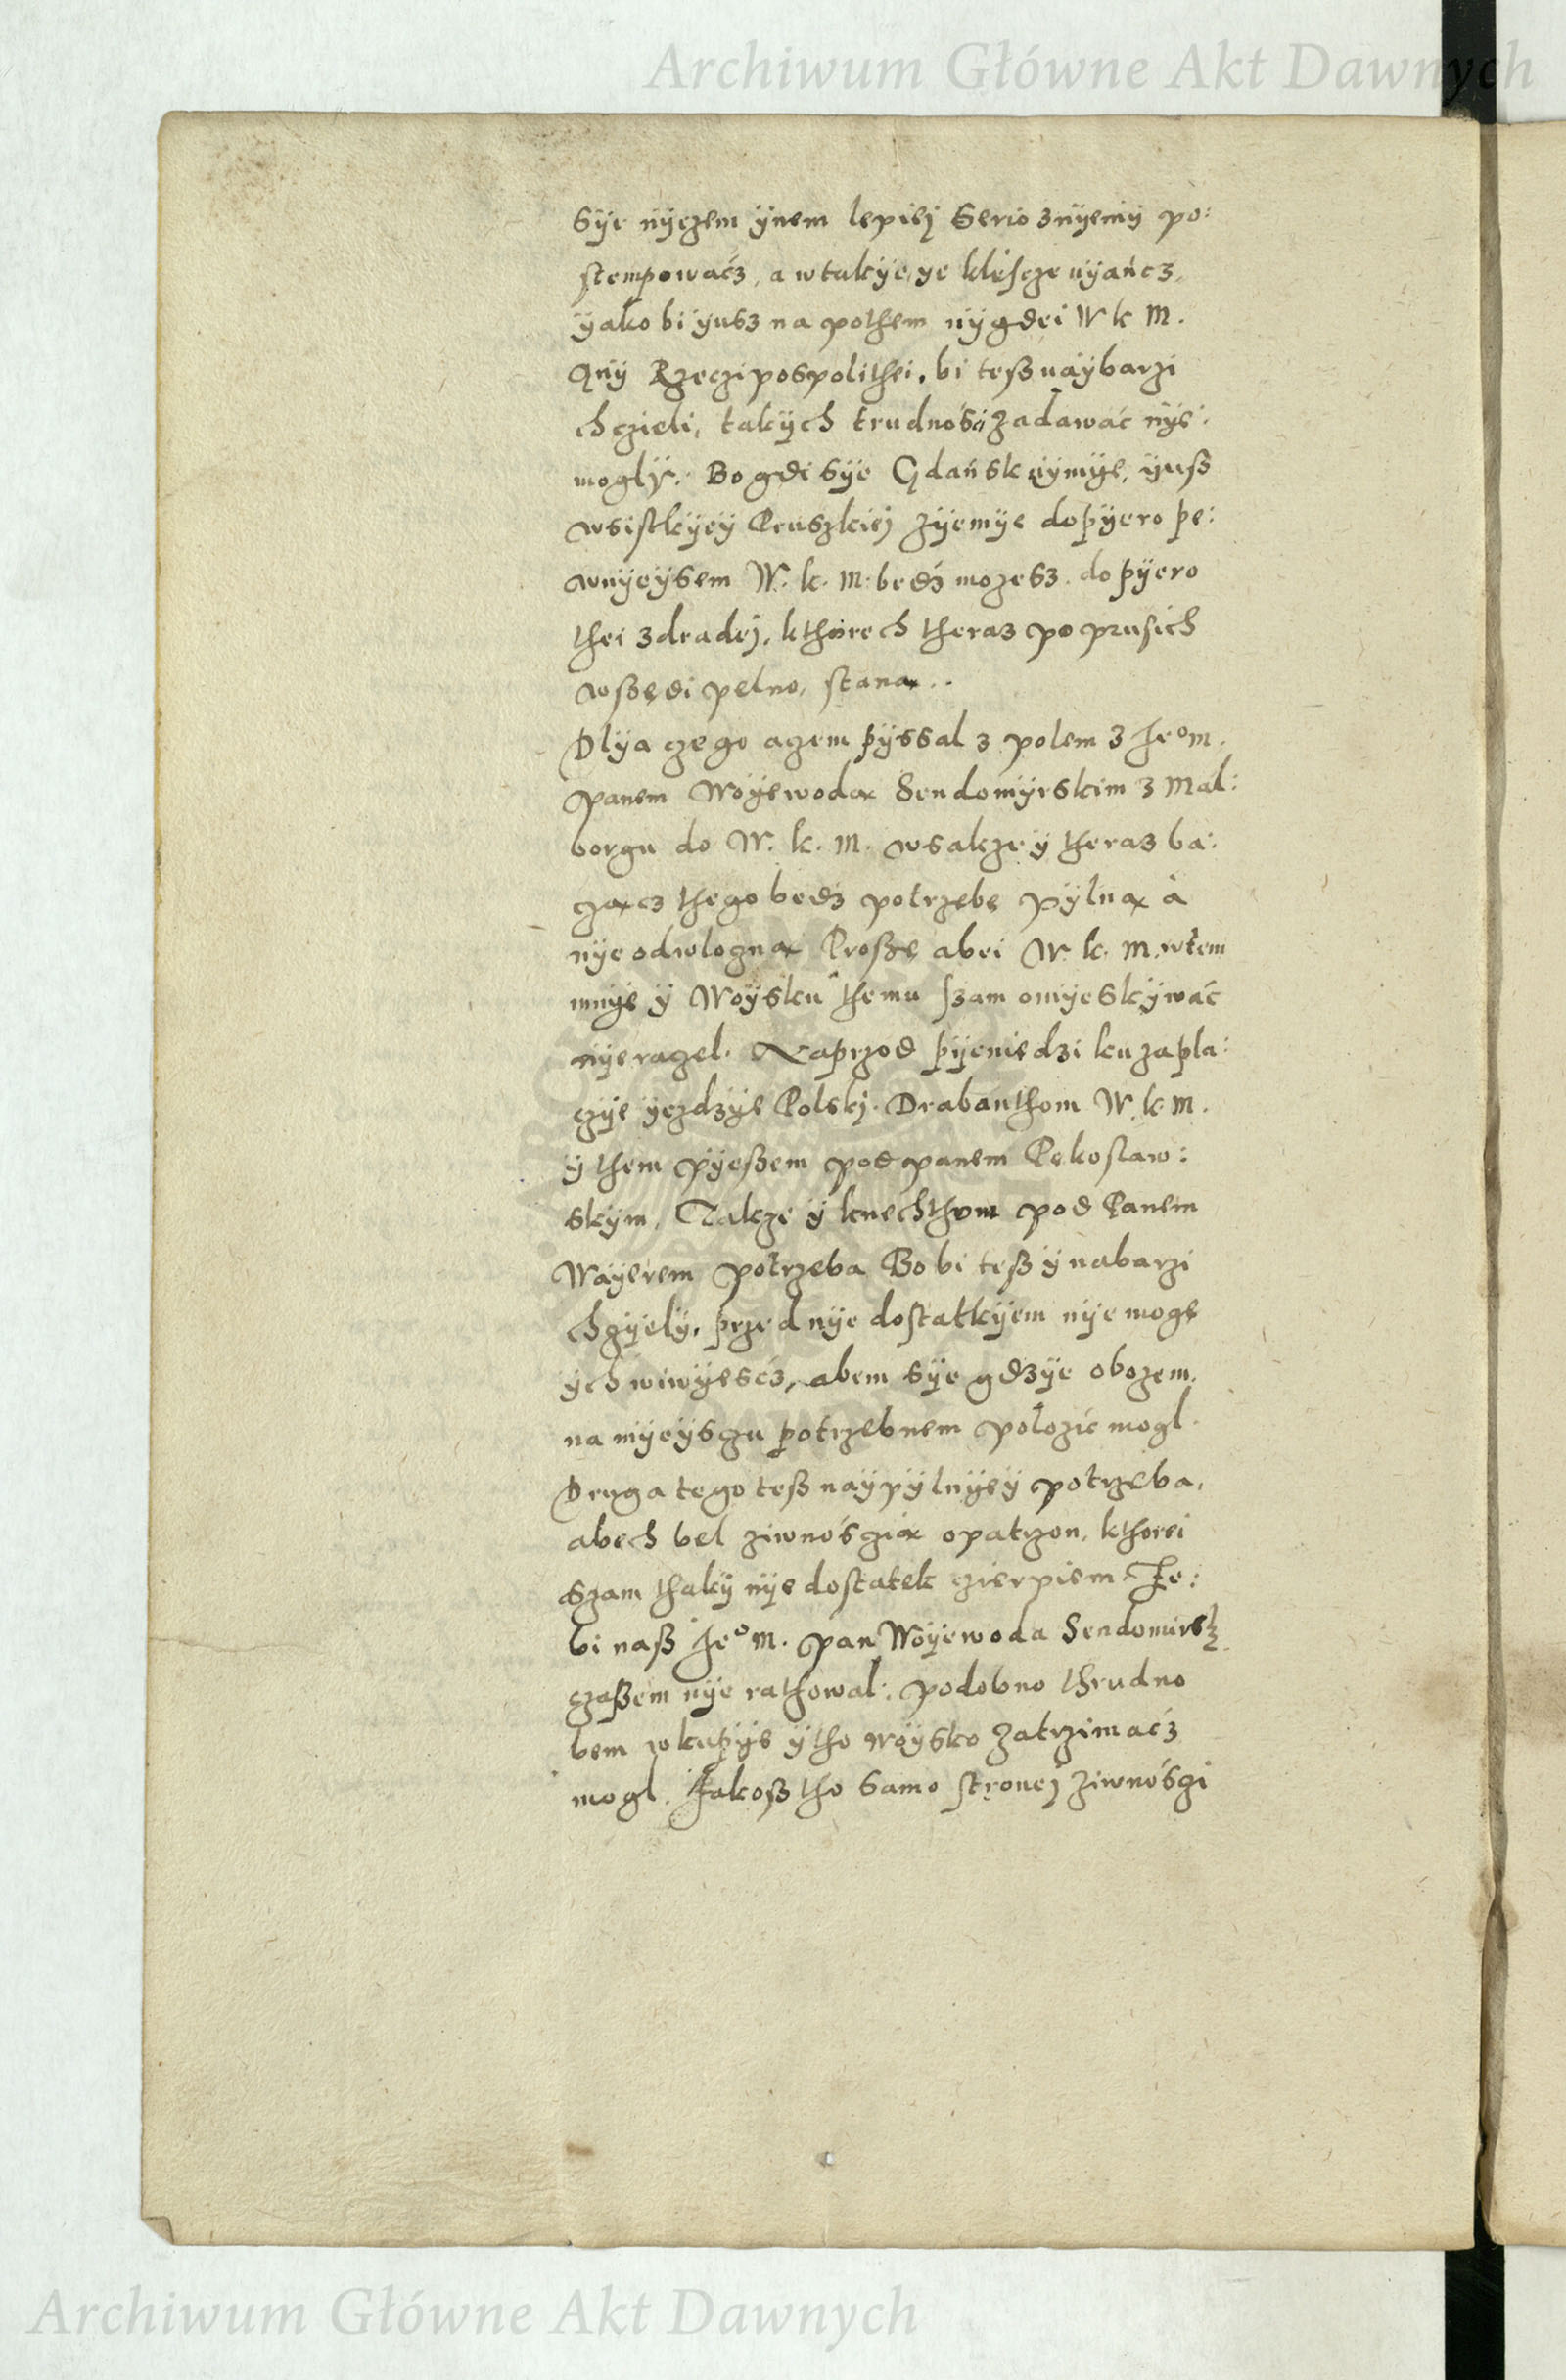 Archiwum Główne Akt Dawnych
Sÿe nÿczem ÿnem lepieÿ Serio znÿemÿ po:
stempowacz, a wtakÿe ye klescze uÿancz,
ÿako bi ÿusz na pothem nÿgdei W k M.
Any Rzeczipospolithei, bi tesz naÿbarzi
chczieli, takÿch trudnosci zadawac nÿe:
moglÿ. Bo gdi Sÿe Gdansk uÿmÿe, ÿusz
wsistkÿeÿ Pruszkieÿ zÿemÿe dopÿero pe:
wnÿeÿsem W. k. M. bedz mozesz. dopÿero
thei zdradeÿ, kthorech theraz po prusich
wszędi pelno, stana..
Dlÿa czego aczem pÿssal z polem z Jeᵒ m.
panem Woÿewoda Sendomÿrskim z Mal:
borgu do W. k. M. wsakze ÿ theraz ba:
czacz thego bedz potrzebe pÿlna a
nÿe odwlogzna Prosze abei W. k. M. wtem
mnÿe ÿ Woÿsku themu szam omÿeskÿwac
nÿe razel. Naprzod pÿeniedzi ku zapla:
czÿe ÿezdzÿe Polskÿ. Drabanthom W. k. M.
ÿ them pÿeszem pod panem Pekoslaw:
skÿm, Takze ÿ knechthom pod Panem
Waÿerem potrzeba Bo bi tesz ÿ nabarzi
chczÿelÿ, przed nÿedostatkÿem nÿe moge
ÿch wiwÿescz, abem sÿe gdzÿe obozem
na mÿeÿsczu potrzebnem polozic mogl.
Druga tego tesz naÿpÿlnÿeÿ potrzeba,
abech bel ziwnosczia opatrzon, kthorei
szam thakÿ nÿedostatek czierpiem. Je:
bi nasz Jeᵒ m. pan Woÿewoda Sendomirskÿ
czaszem nÿe rathowal: podobno thrudno
bem w kupÿe ÿ tho woÿsko zatrzimacz
mogl. Jakosz tho samo stroneÿ ziwnosczi
Archiwum Główne Akt Dawnych